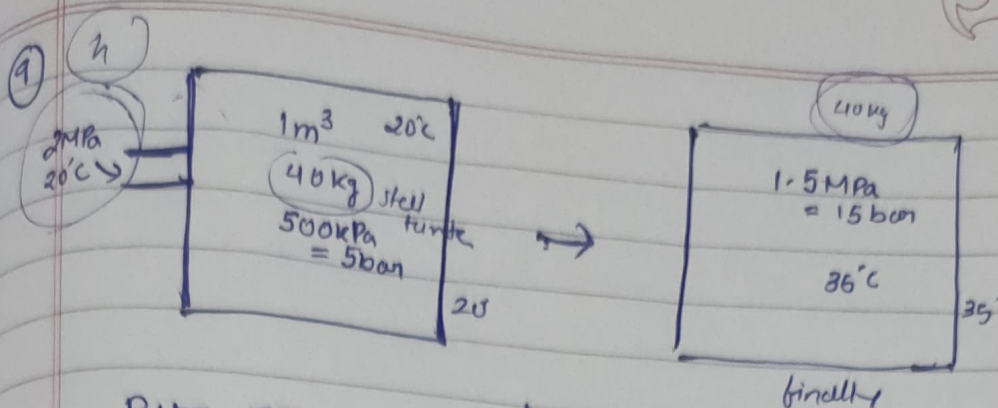 9
h
2MPa
20°C
1m³ 20°C
40kg
500kPa
= 5bar
20
40kg
1.5MPa
= 15bar
35°C
35
finally